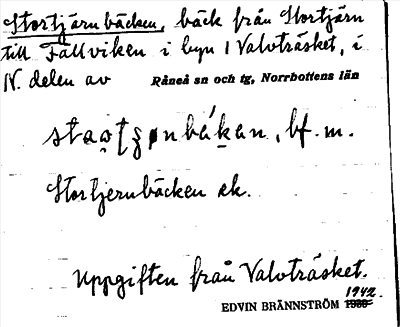 Stortjärnbäcken, bäck från Stortjärn
till Fällviken i byn Valvträsket, i
N. delen av Råneå sn och tg, Norrbottens län
bf. m.
Stortjernbäcken ek.
Uppgiften från Valvträsket.
1942.
EDVIN BRÄNNSTRÖM 1930